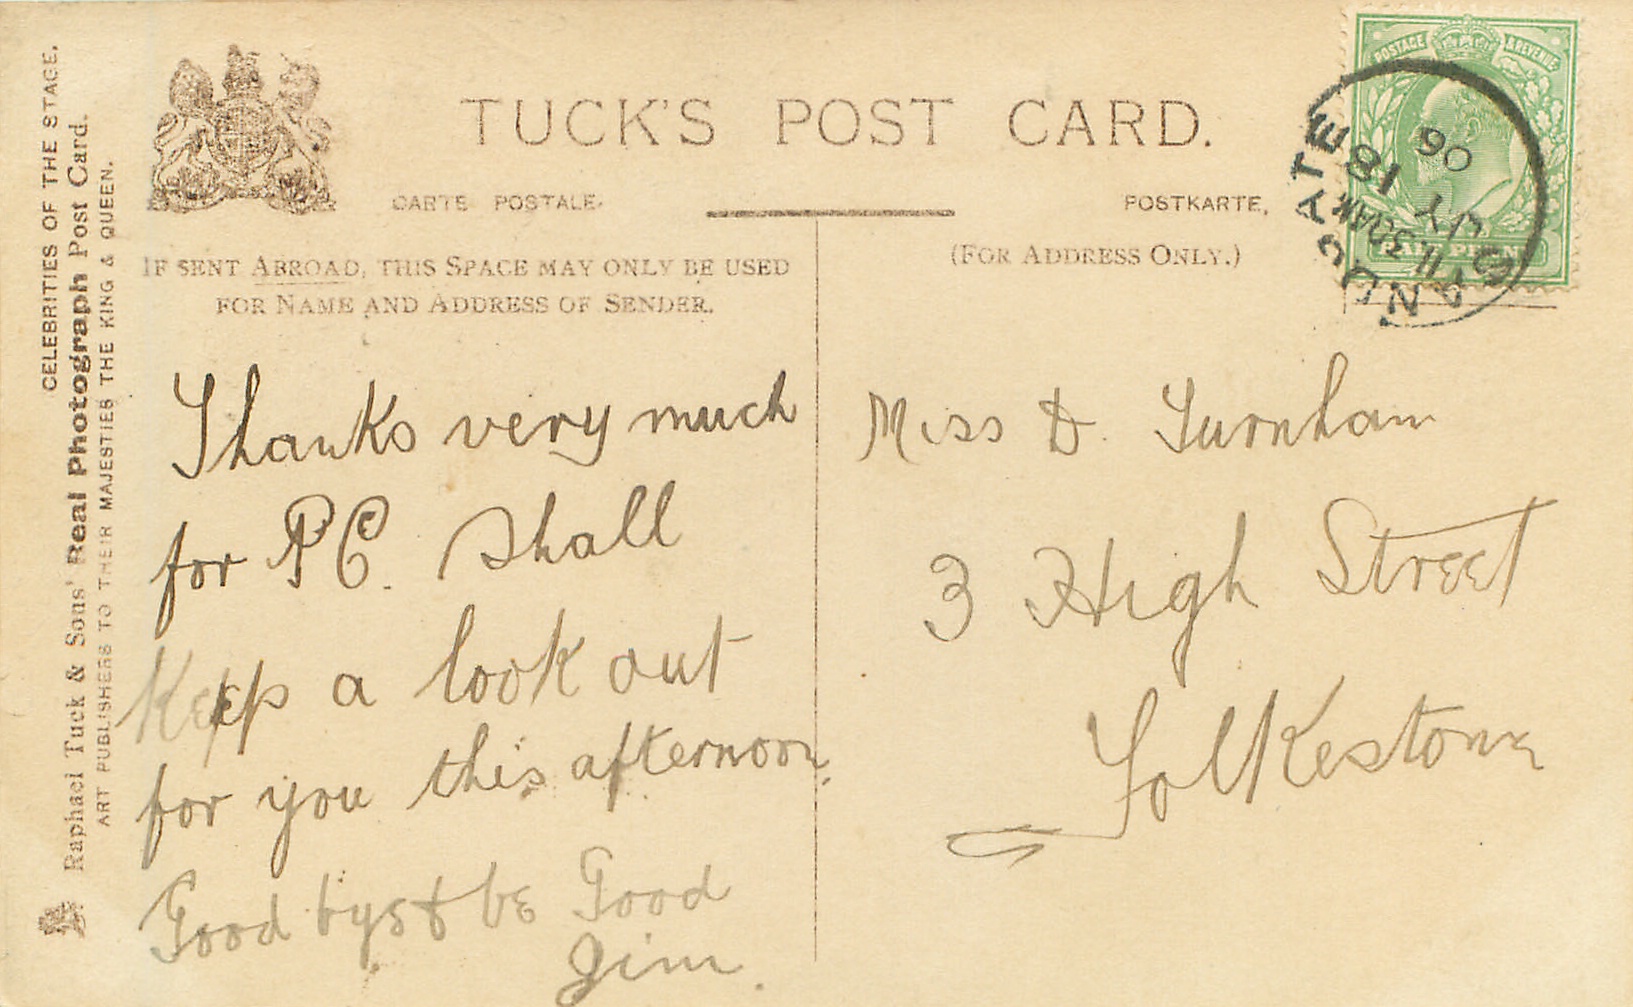 CELEBRITIES OF THE STAGE.
Raphael Tuck & Sons' Real Photograph Post Card.
ART PUBLISHERS TO THEIR MAJESTIES THE KING & QUEEN.
TUCK'S POST CARD.
CARTE POSTALE.
POSTKARTE.
IF SENT ABROAD, THIS SPACE MAY ONLY BE USED
FOR NAME AND ADDRESS OF SENDER.
(FOR ADDRESS ONLY.)
POSTAGE & REVENUE
HALFPENNY
SANDGATE
11.30AM
JY 18
06
Thanks very much
for PC. Shall
Keep a look out
for you this afternoon.
Good bye & be Good
Jim.
Miss D. Turnham
3 High Street
Folkestone